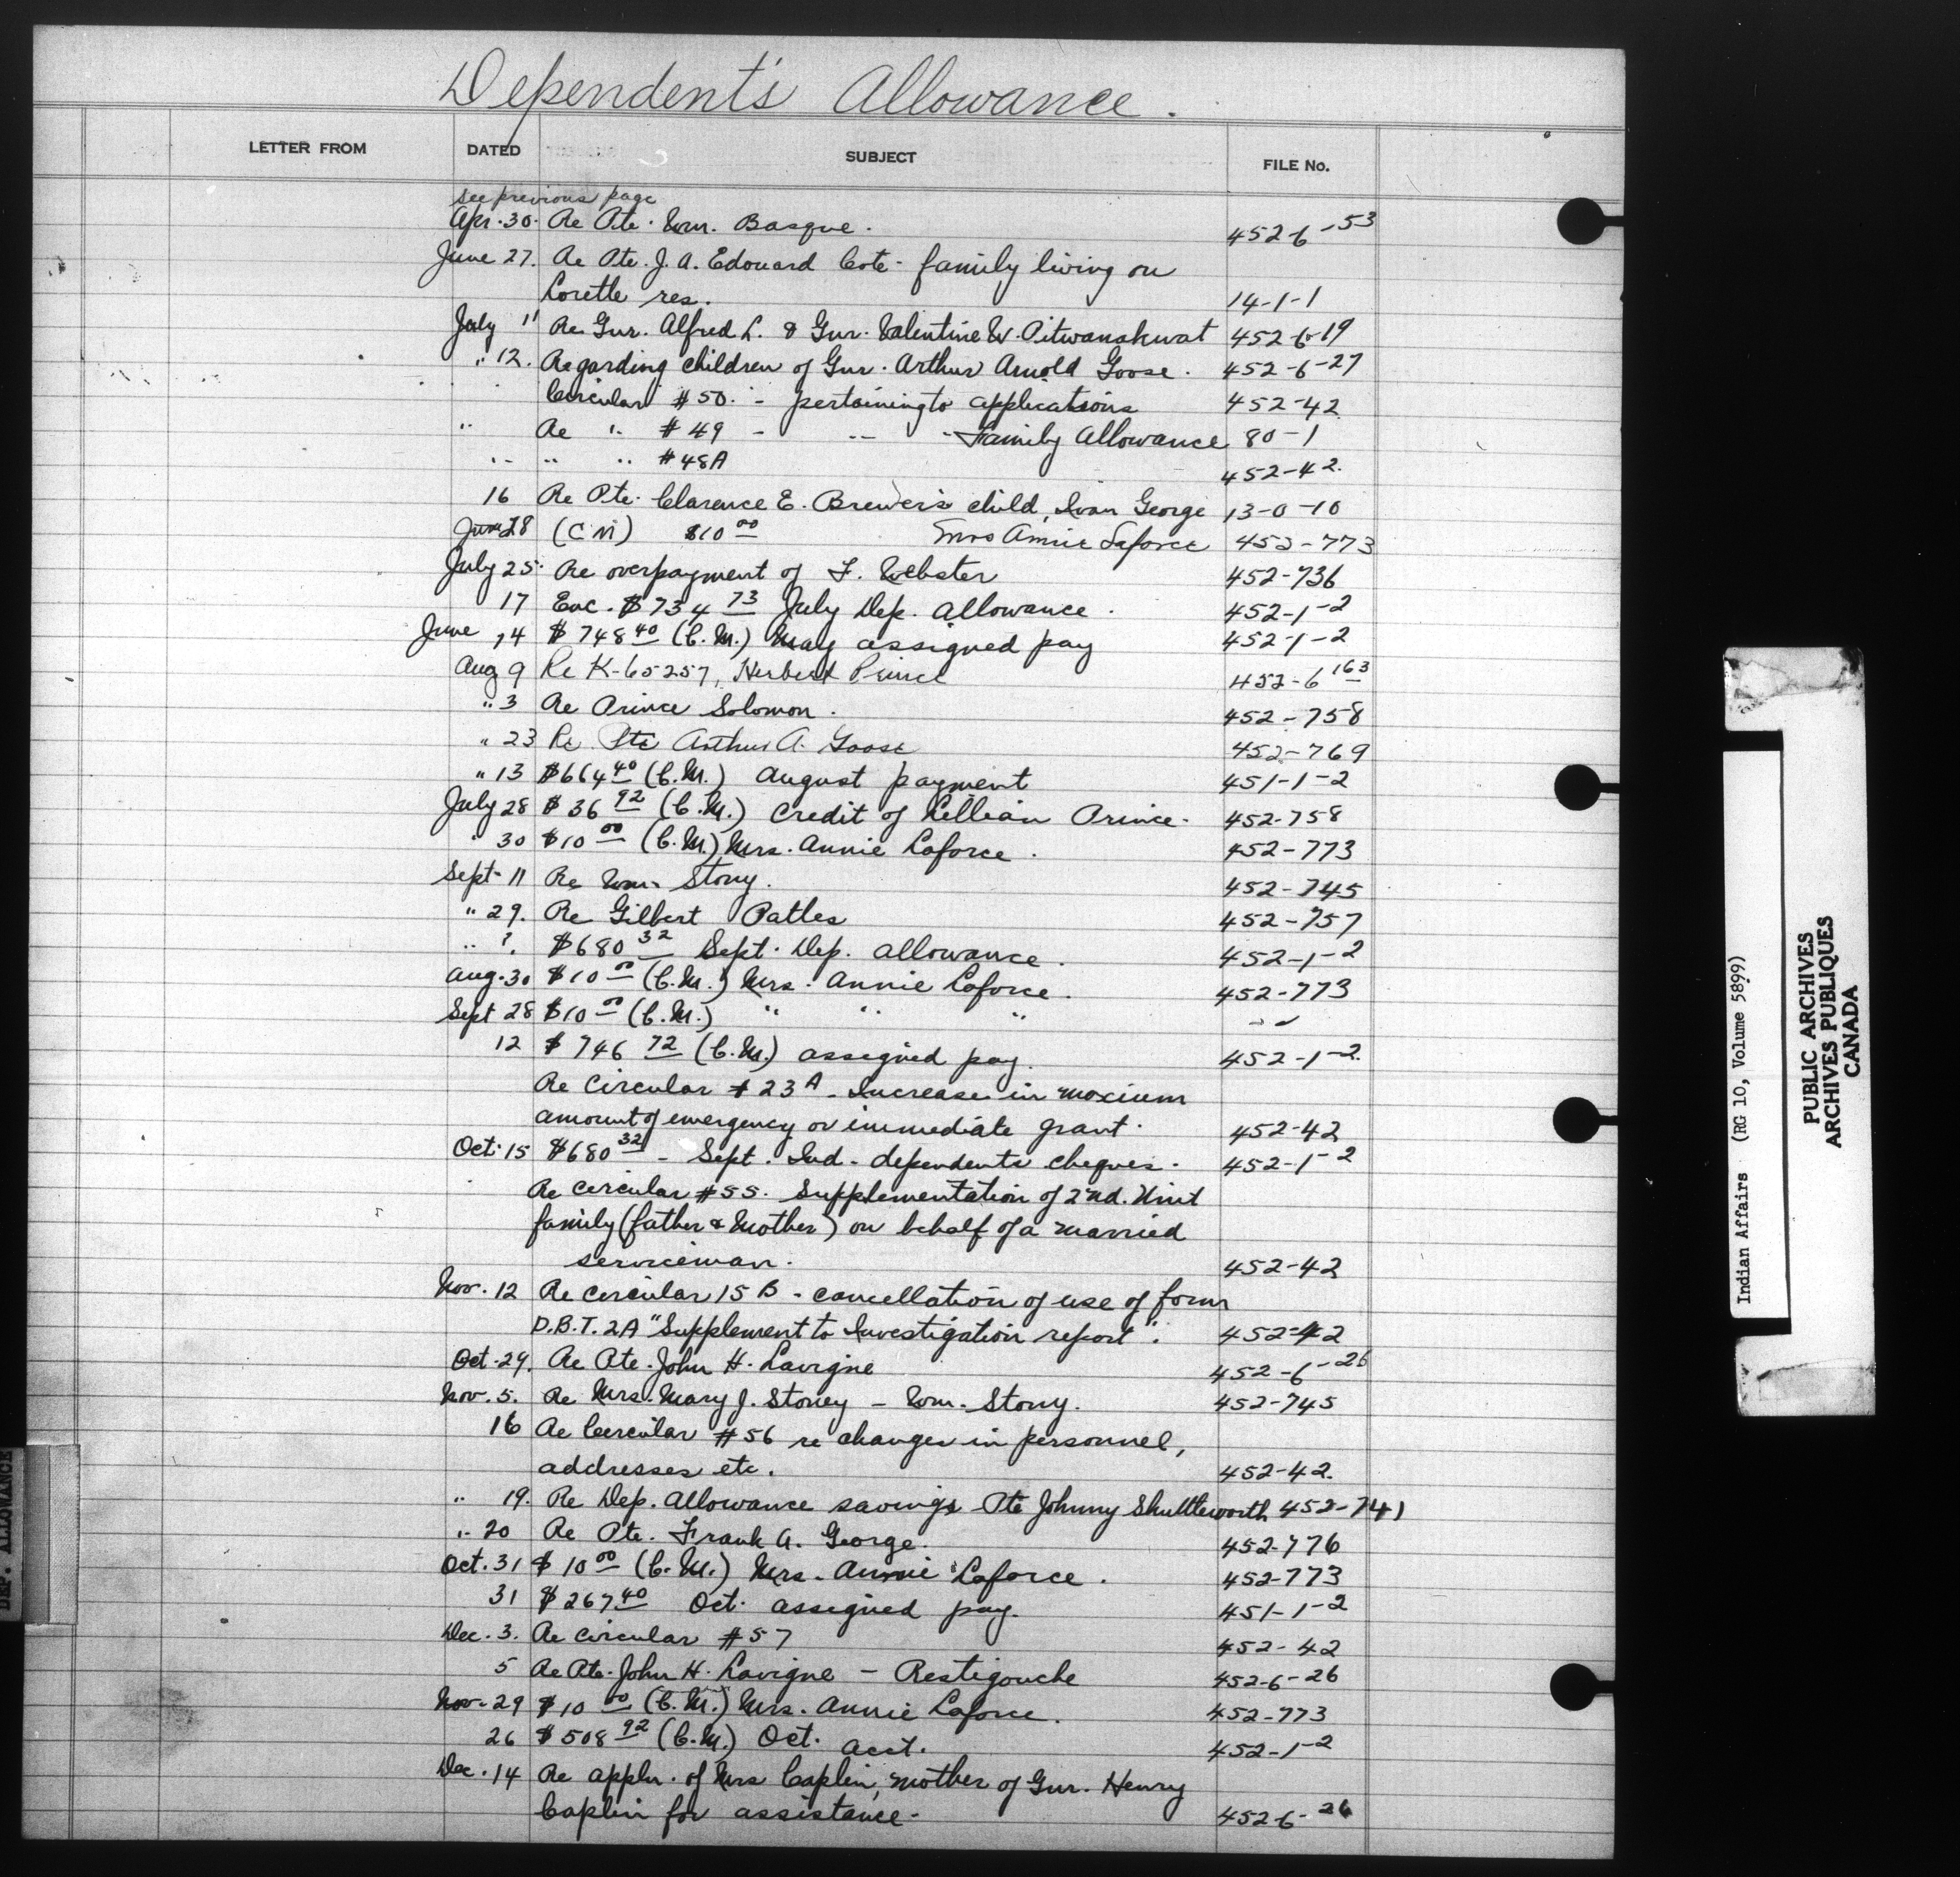 Dependent's Allowance.
LETTER FROM DATED SUBJECT FILE No.
see previous page
Apr. 30. Re Pte. Wm. Basque. 452-6-53
June 27. Re Pte. J. A. Edouard Cote - family living on
Lorette res. 14-1-1
July 11 Re Gnr. Alfred L. & Gnr. Valentine W. Pitwanakwat 452-6-19
" 12. Regarding children of Gnr. Arthur Arnold Goose. 452-6-27
Circular #50. - pertaining to applications 452-42
" Re " #49 - " " - Family Allowance 80-1
" " " #48A 452-42.
16 Re Pte. Clarence E. Brewer's child, Ivan George 13-0-10
June 28 (C M) $10 00 Mrs Annie Laforce 452-773
July 25. Re overpayment of F. Webster 452-736
17 Enc. $734 73 July Dep. allowance. 452-1-2
June 14 $748 40 (C.M.) May assigned pay 452-1-2
Aug 9 Re K-65257, Herbert Prince 452-6 163
" 3 Re Prince Solomon. 452-758
" 23 Re. Pte Arthur A. Goose 452-769
" 13 $664 40 (C.M.) August payment 451-1-2
July 28 $36 92 (C.M.) Credit of Lillian Prince. 452-758
" 30 $10 00 (C.M.) Mrs. Annie Laforce. 452-773
Sept. 11 Re Wm. Stony. 452-745
" 29. Re Gilbert Patles 452-757
" ?. $680 32 Sept. Dep. allowance. 452-1-2
Aug. 30 $10 00 (C.M.) Mrs. Annie Laforce. 452-773
Sept 28 $10 00 (C.M.) " " "
12 $746 72 (C.M.) assigned pay. 452-1-2.
Re Circular #23A - Increase in moxium
amount of emergency or immediate grant. 452-42
Oct. 15 $680 32 - Sept. Ind. dependents cheques. 452-1-2
Re circular #55. Supplementation of 2nd. Unit
family (father & mother) on behalf of a married
serviceman. 452-42
Nov. 12 Re circular 15 B - cancellation of use of form
D.B.T. 2A "Supplement to Investigation report". 452-42
Oct. 29. Re Pte. John H. Lavigne 452-6-26
Nov. 5. Re Mrs. Mary J. Stoney - Wm. Stony. 452-745
16 Re Circular #56 re changes in personnel,
addresses etc. 452-42.
" 19. Re Dep. Allowance savings Pte Johnny Shuttleworth 452-741
" 20 Re Pte. Frank A. George. 452-776
Oct. 31 $10 00 (C.M.) Mrs. Annie Laforce. 452-773
31 $267 40 Oct. assigned pay. 451-1-2
Dec. 3. Re circular #57 452-42
5 Re Pte. John H. Lavigne - Restigouche 452-6-26
Nov. 29 $10 00 (C.M.) Mrs. Annie Laforce. 452-773
26 $508 92 (C.M.) Oct. acct. 452-1-2
Dec. 14 Re appln. of Mrs Caplin, mother of Gnr. Henry
Caplin for assistance. 452-6-26
DEP. ALLOWANCE
Indian Affairs (RG 10, Volume 5899)
PUBLIC ARCHIVES
ARCHIVES PUBLIQUES
CANADA